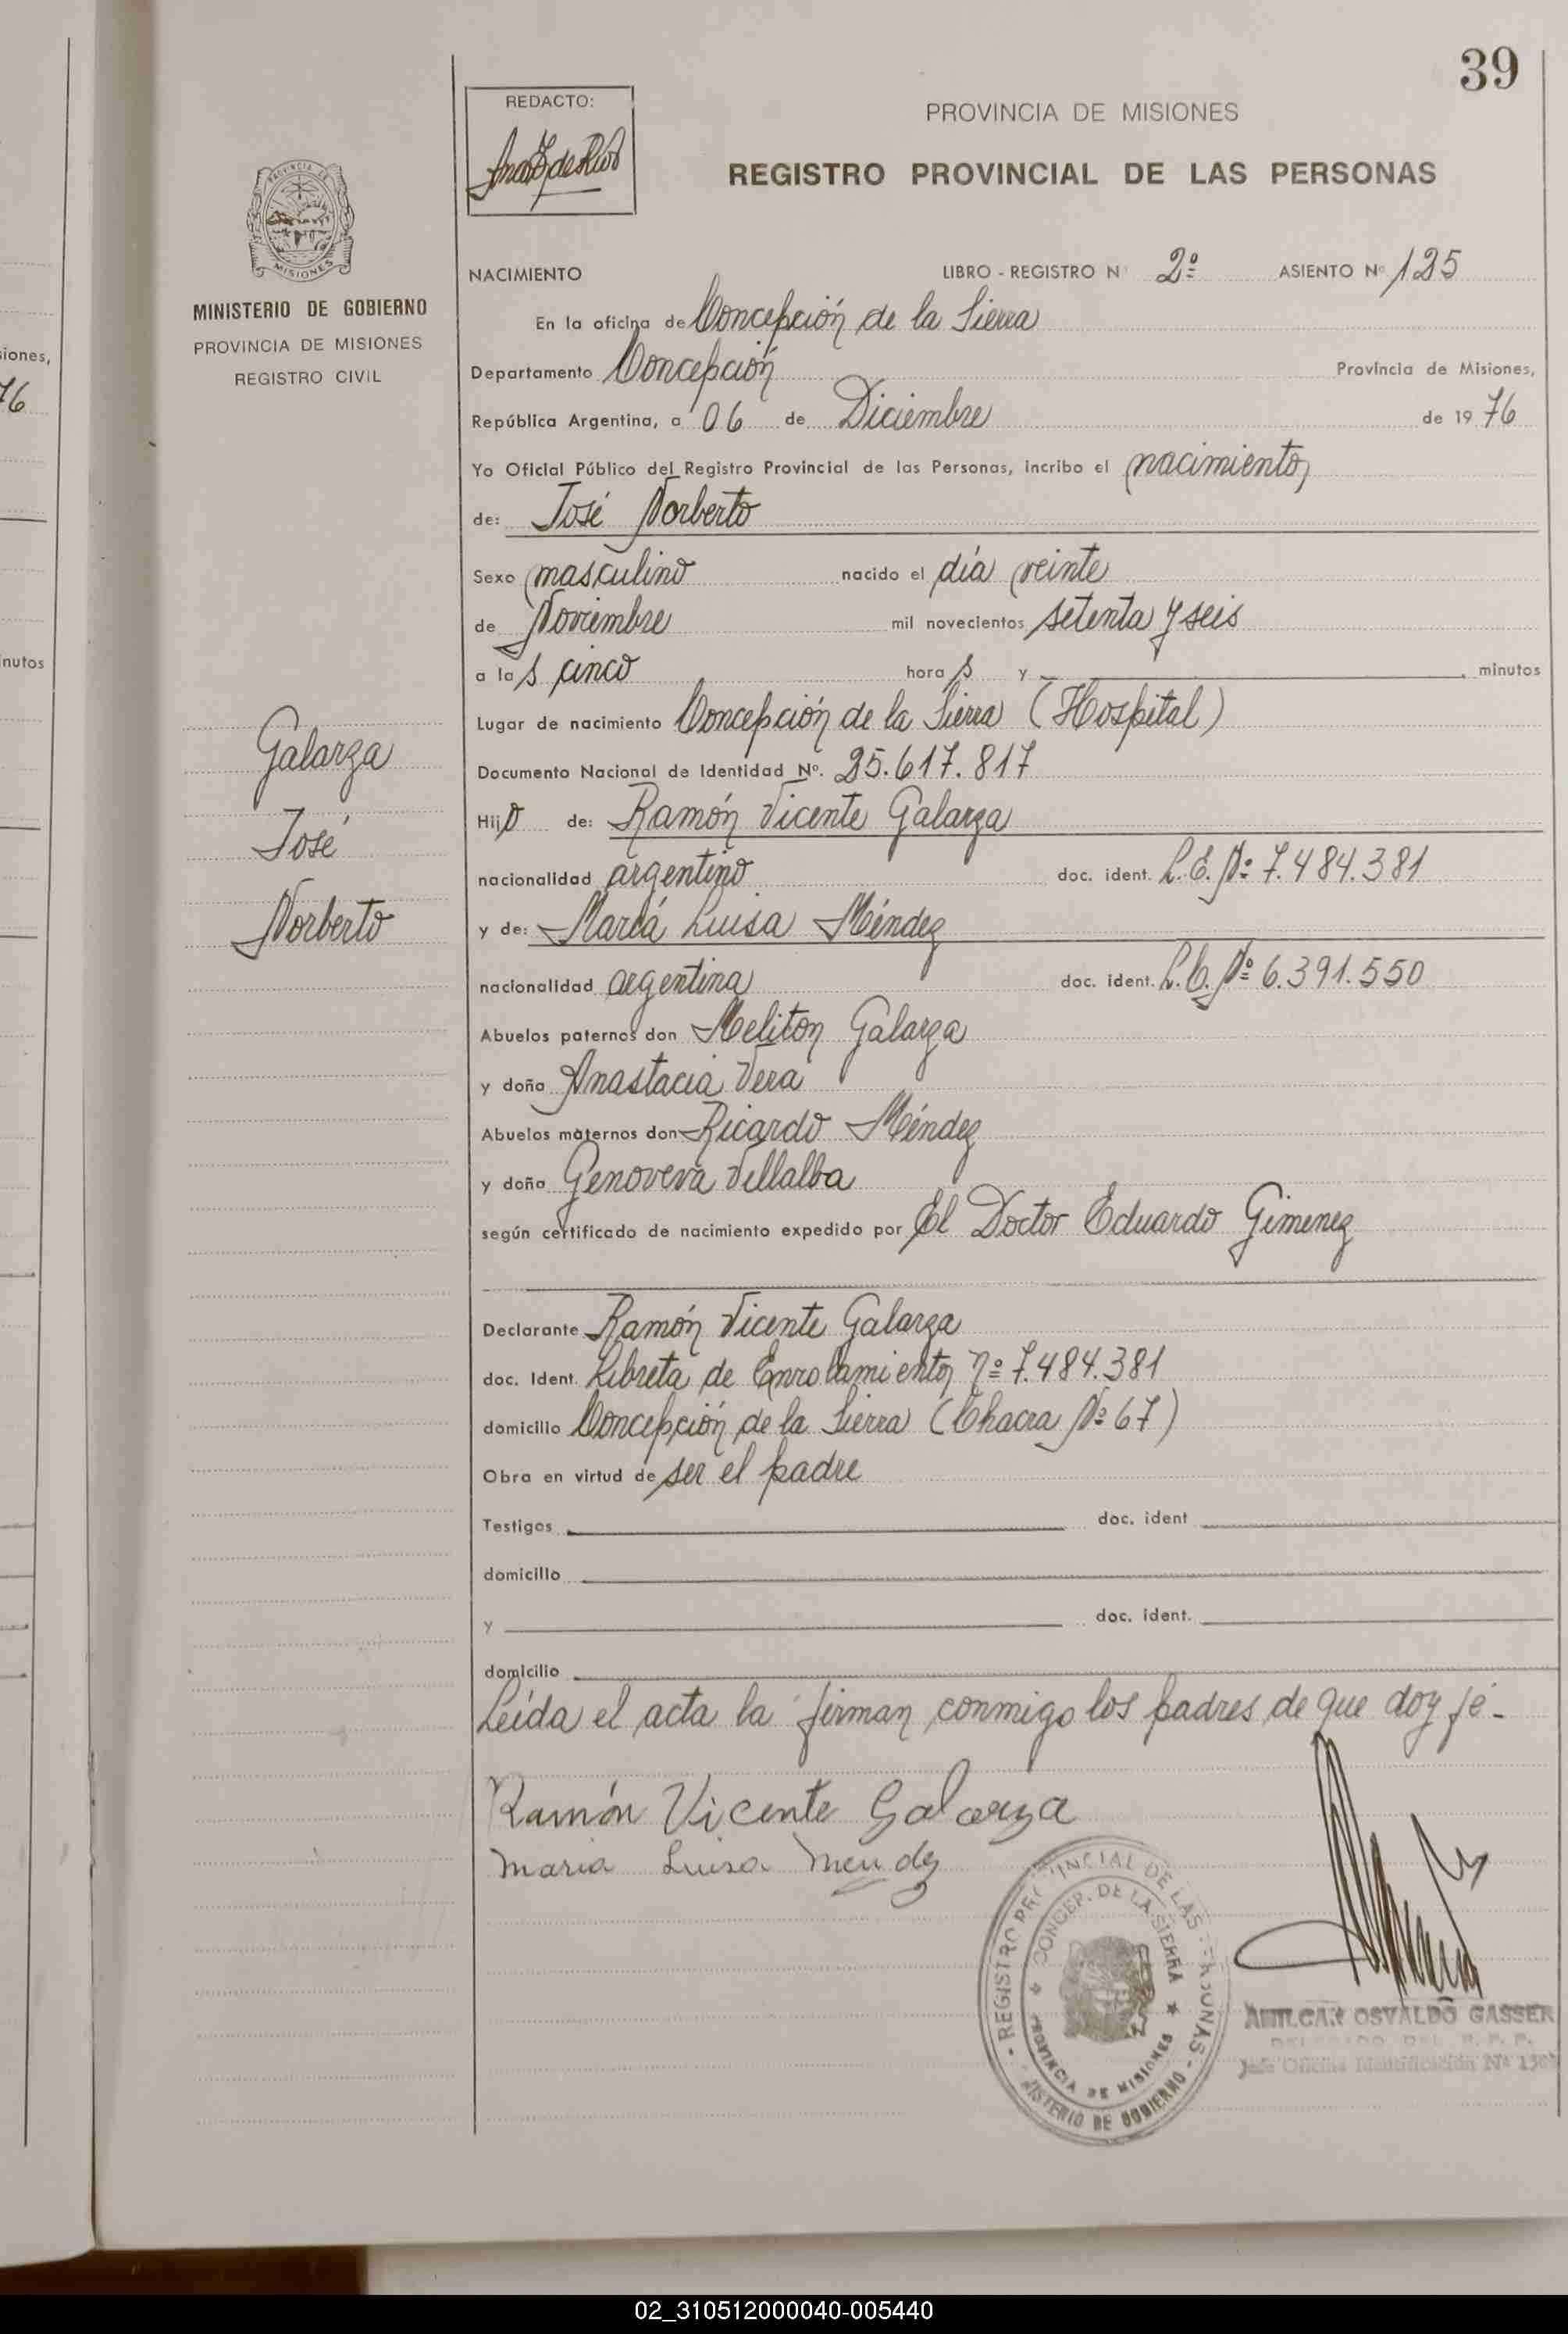 39
REDACTO:
PROVINCIA DE MISIONES
REGISTRO PROVINCIAL DE LAS PERSONAS
PROVINCIA DE
MISIONES
MINISTERIO DE GOBIERNO
PROVINCIA DE MISIONES
REGISTRO CIVIL
iones,
76
nutos
Galarza
José
Norberto
NACIMIENTO LIBRO - REGISTRO N° 2º ASIENTO Nº 125
En la oficina de Concepción de la Sierra
Departamento Concepción Provincia de Misiones,
República Argentina, a 06 de Diciembre de 1976
Yo Oficial Público del Registro Provincial de las Personas, incribo el nacimiento
de: José Norberto
Sexo masculino nacido el día veinte
de Noviembre mil novecientos setenta y seis
a las cinco horas y minutos
Lugar de nacimiento Concepción de la Sierra (Hospital)
Documento Nacional de Identidad Nº. 25.617.817
Hijo de: Ramón Vicente Galarza
nacionalidad argentino doc. ident. L.E. Nº 7.484.381
y de: María Luisa Méndez
nacionalidad argentina doc. ident. L.C. Nº 6.391.550
Abuelos paternos don Meliton Galarza
y doña Anastacia Vera
Abuelos maternos don Ricardo Méndez
y doña Genoveva Villalba
según certificado de nacimiento expedido por El Doctor Eduardo Gimenez
Declarante Ramón Vicente Galarza
doc. Ident. Libreta de Enrolamiento nº 7.484.381
domicilio Concepción de la Sierra (Chacra Nº 67)
Obra en virtud de ser el padre
Testigos doc. ident
domicilio
y doc. ident.
domicilio
Leída el acta la firman conmigo los padres de que doy fé-
Ramón Vicente Galarza
Maria Luisa Mendez
REGISTRO PROVINCIAL DE LAS PERSONAS
CONCEP. DE LA SIERRA
PROVINCIA DE MISIONES
MINISTERIO DE GOBIERNO
AMILCAR OSVALDO GASSER
DELEGADO DEL R. P. P.
Jefe Oficina Identificación Nº
02_310512000040-005440